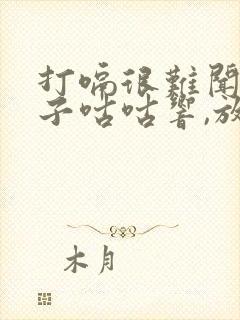 打嗝很難聞
子咕咕響,放
木月